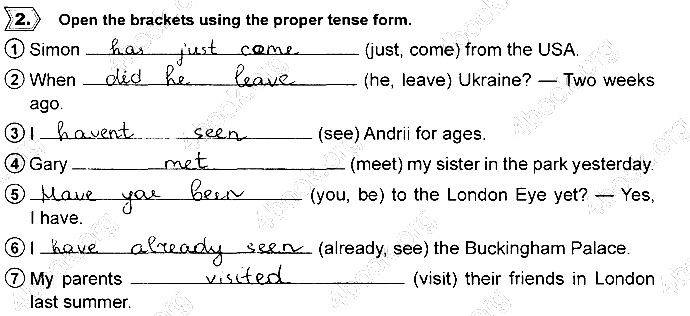 2. Open the brackets using the proper tense form.
1 Simon has just come (just, come) from the USA.
2 When did he leave (he, leave) Ukraine? — Two weeks
ago.
3 I havent seen (see) Andrii for ages.
4 Gary met (meet) my sister in the park yesterday.
5 Have you been (you, be) to the London Eye yet? — Yes,
I have.
6 I have already seen (already, see) the Buckingham Palace.
7 My parents visited (visit) their friends in London
last summer.